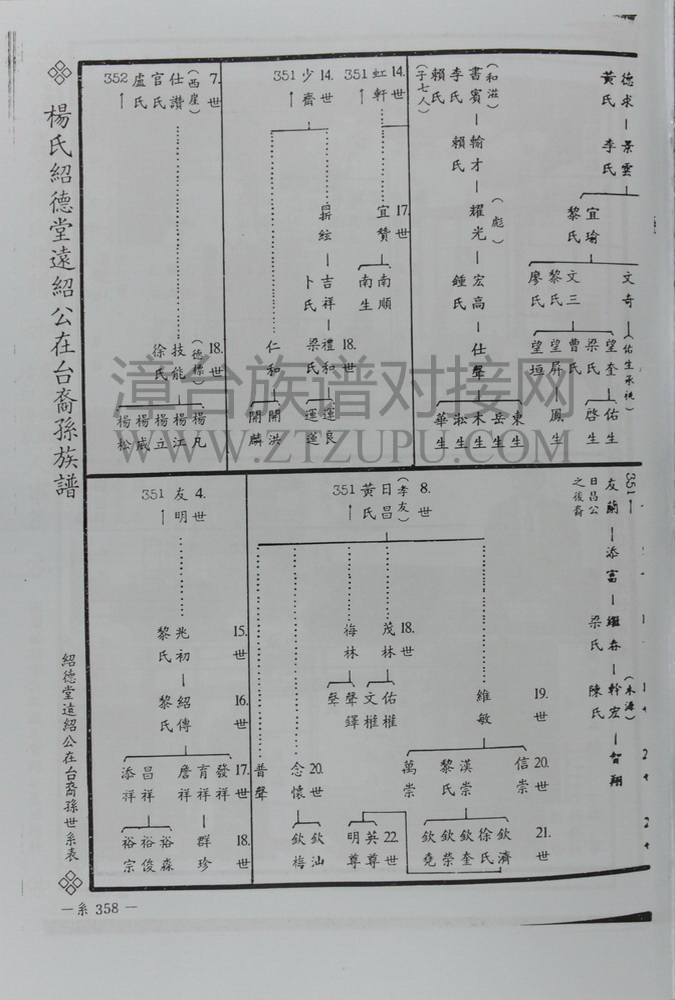 德求—景雲
黃氏 李氏
宜瑜
黎氏
文奇 (佑生承祧)
文三
黎氏
廖氏
望奎
梁氏
曹氏
望屏
望垣
佑生
啓生
鳳生
(和滋)
書賓—翰才—耀光—宏高—仕聲
李氏 賴氏 (彪) 鍾氏
賴氏
(子七人)
東生
岳生
木生
淞生
華生
14.世
虹軒
351→
17.世
宜贊
南順
南生
14.世
少齋
351→
昙絃—吉祥—禮和
卜氏 梁氏
18.世
仁和
運良
開洪
開麟
7.世
(西崖)
仕讚
官氏
盧氏
352→
18.世
(德標)
技能
徐氏
楊凡
楊江
楊立
楊威
楊松
351—
友蘭—添富—繼春—幹宏—智翔
梁氏 陳氏
日昌公之後裔
8.世
(孝友)
日昌
黃氏
351→
18.世
茂林
梅林
佑權
文權
聲鐸
19.世
維敏
20.世
信崇
漢崇
黎氏
萬崇
21.世
欽濟
徐氏
欽奎
欽榮
欽堯
22.世
英尊
明尊
20.世
念懷
欽汕
欽梅
普聲
4.世
友明
351→
15.世
光初
黎氏
16.世
紹傳
黎氏
17.世
發祥
育祥
詹祥
昌祥
添祥
18.世
群珍
裕森
裕俊
裕宗
楊氏紹德堂遠紹公在台裔孫族譜
紹德堂遠紹公在台裔孫世系表
—系 358—
漳台族谱对接网
WWW.ZTZUPU.COM